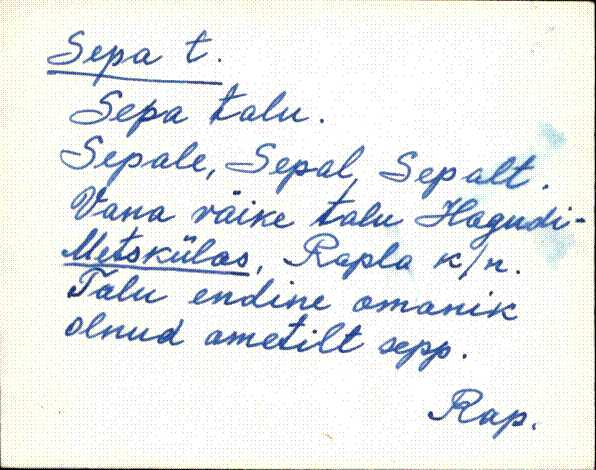 Sepa t.
Sepa talu.
Sepale, Sepal, Sepalt.
Vana väike talu Hagudi-
Metskülas, Rapla k/n.
Talu endine omanik
olnud ametilt sepp.
Rap.